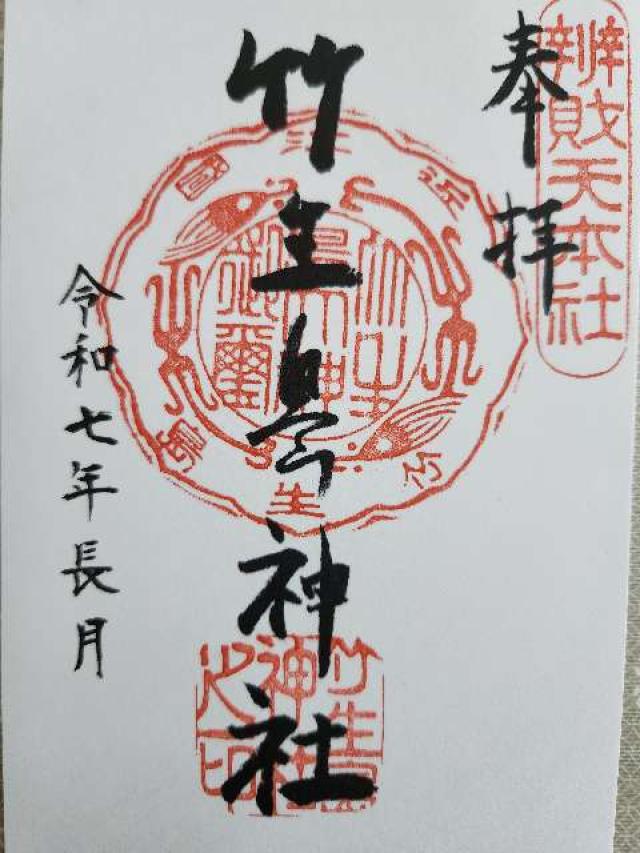 辨財天本社
奉拝
竹生島神社
令和七年長月
近江國
竹生島
竹生島
神社
之印